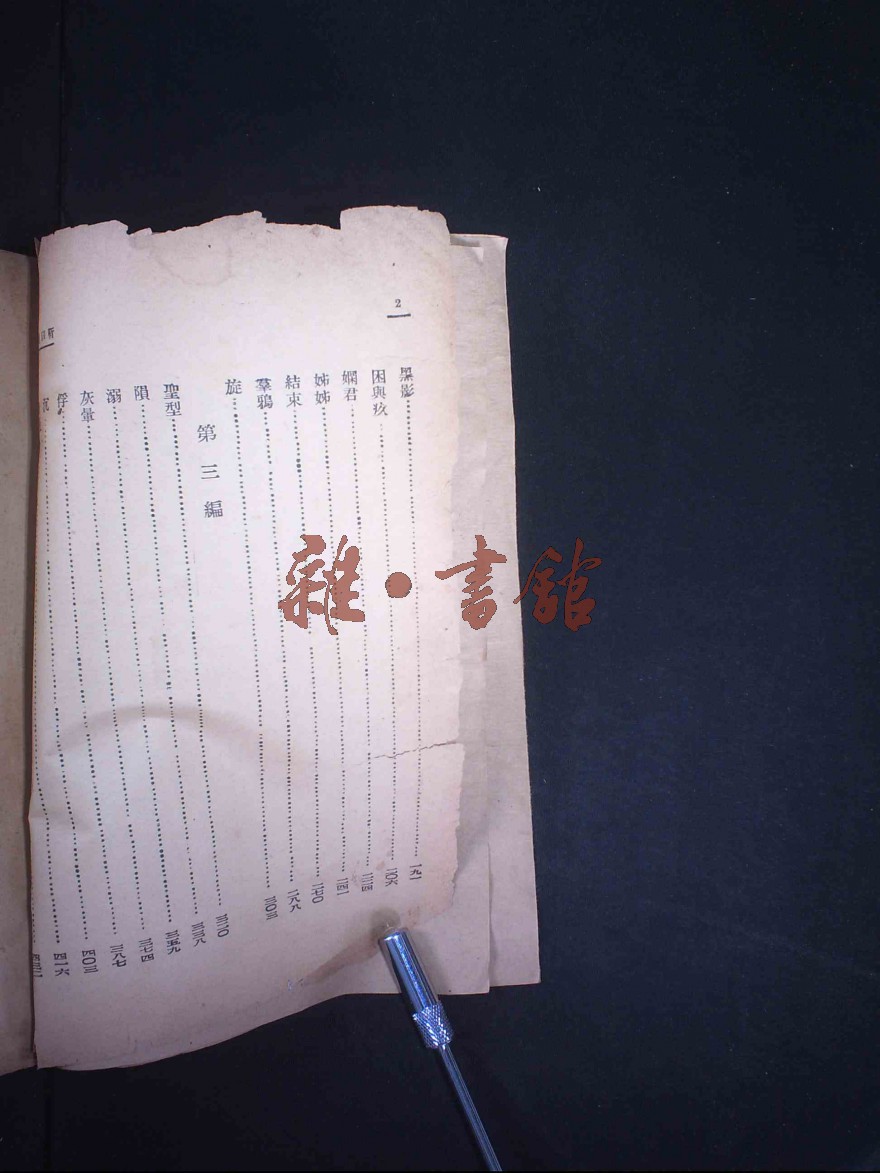 2
黑影 一九一
困與疚 二〇六
嫻君 二二四
姊姊 二四一
結束 二七〇
羣鴉 二八八
旋 三〇三
第三編
聖型 三二〇
隕 三三八
溺 三五九
灰暈 三七四
俘 三八七
沉 四〇三
四一六
雜·書館